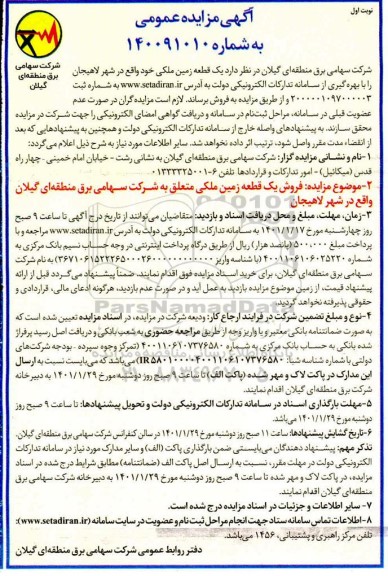 نوبت اول
آگهی مزایده عمومی
به شماره ۱۴۰۰۹۱۰۱۰
شرکت سهامی برق منطقه‌ای گیلان
شرکت سهامی برق منطقه‌ای گیلان در نظر دارد یک قطعه زمین ملکی خود واقع در شهر لاهیجان
را با بهره‌گیری از سامانه تدارکات الکترونیکی دولت به آدرس www.setadiran.ir به شماره ثبت
۲۰۰۰۰۰۱۰۹۷۰۰۰۰۰۳ و از طریق مزایده به فروش برساند. لازم است مزایده‌گران در صورت عدم
عضویت قبلی در سامانه، مراحل ثبت‌نام در سامانه و دریافت گواهی امضای الکترونیکی را جهت شرکت در مزایده
محقق سازند. به پیشنهادهای واصله خارج از سامانه تدارکات الکترونیکی دولت و همچنین به پیشنهادهایی که بعد
از انقضاء مدت مقرر واصل شود، ترتیب اثر داده نخواهد شد. سایر اطلاعات مورد نیاز به شرح ذیل اعلام می‌گردد:
۱-نام و نشانی مزایده گزار: شرکت سهامی برق منطقه‌ای گیلان به نشانی رشت - خیابان امام خمینی. چهار راه
قدس (میکائیل) - امور تدارکات و قراردادها تلفن ۶-۰۱۳۳۳۳۲۵۰۰۱
۲-موضوع مزایده: فروش یک قطعه زمین ملکی متعلق به شرکت سهامی برق منطقه‌ای گیلان
واقع در شهر لاهیجان
۳-زمان، مهلت، مبلغ و محل دریافت اسناد و بازدید: متقاضیان می‌توانند از تاریخ درج آگهی تا ساعت ۹ صبح
روز چهارشنبه مورخ ۱۴۰۱/۱/۱۷ به سامانه تدارکات الکترونیکی دولت به آدرس www.setadiran.ir مراجعه و با
پرداخت مبلغ ۵۰۰,۰۰۰ (پانصد هزار) ریال از طریق درگاه پرداخت اینترنتی در وجه حساب نسیم بانک مرکزی به
شماره ۴۰۰۱۱۰۶۱۰۶۰۲۵۲۲۰ (با شناسه واریز) به نام شرکت
سهامی برق منطقه‌ای گیلان، برای خرید اسناد مزایده فوق اقدام نمایند. ضمناً پیشنهاد می‌گردد قبل از ارائه
پیشنهاد قیمت، از زمین موضوع مزایده بازدید به عمل آید و در صورت عدم بازدید، هرگونه ادعای مالی، قراردادی و
حقوقی پذیرفته نخواهد گردید.
۴-نوع و مبلغ تضمین شرکت در فرایند ارجاع کار: ودیعه شرکت در مزایده، در اسناد مزایده تعیین شده است که
به صورت ضمانتنامه بانکی معتبر و یا واریز وجه از طریق مراجعه حضوری به شعب بانکی و دریافت اصل رسید پرفراژ
شده بانکی به حساب بانک مرکزی به شماره ۴۰۰۱۱۰۶۱۰۷۳۷۶۵۸۰ (تمرکز وجوه سپرده - بودجه شرکت‌های
دولتی با شماره شناسه شبا: IR) می‌باشد که می‌بایست نسبت به ارسال
این مدارک در پاکت لاک و مهر شده (پاکت الف) تا ساعت ۹ صبح روز دوشنبه مورخ ۱۴۰۱/۱/۲۹ به دبیرخانه
شرکت برق منطقه‌ای گیلان اقدام نمایند.
۵-مهلت بارگذاری اسناد در سامانه تدارکات الکترونیکی دولت و تحویل پیشنهادها: تا ساعت ۹ صبح روز
دوشنبه مورخ ۱۴۰۱/۱/۲۹ می‌باشد.
۶-تاریخ گشایش پیشنهادها: ساعت ۱۱ صبح روز دوشنبه مورخ ۱۴۰۱/۱/۲۹ در سالن کنفرانس شرکت سهامی برق منطقه‌ای گیلان.
تذکر مهم: پیشنهاد دهندگان می‌بایستی ضمن بارگذاری پاکت (الف) و سایر مدارک مورد نیاز در سامانه تدارکات
الکترونیکی دولت در مهلت مقرر، نسبت به ارسال اصل پاکت الف (ضمانتنامه) مطابق شرایط درج شده در اسناد
مزایده، در پاکت لاک و مهر شده تا ساعت ۹ صبح روز دوشنبه مورخ ۱۴۰۱/۱/۲۹ به دبیرخانه شرکت سهامی برق
منطقه‌ای گیلان اقدام نمایند.
۷- سایر اطلاعات و جزئیات در اسناد مزایده درج شده است.
۸-اطلاعات تماس سامانه ستاد جهت انجام مراحل ثبت نام و عضویت در سایت سامانه (www.setadiran.ir):
تلفن مرکز راهبری و پشتیبانی، ۱۴۵۶ می‌باشد.
دفتر روابط عمومی شرکت سهامی برق منطقه‌ای گیلان